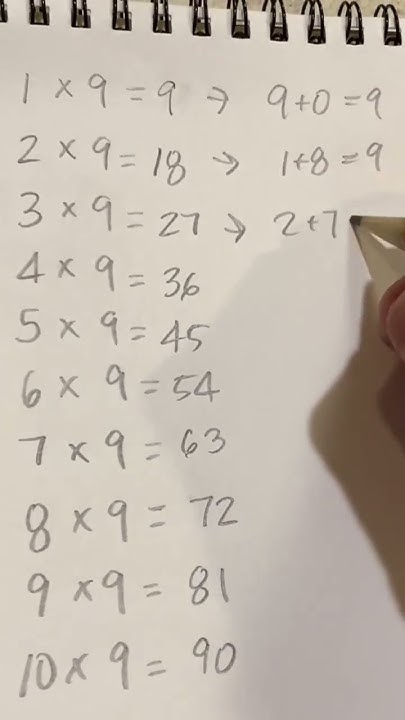 1 × 9 = 9 → 9+0 = 9
2 × 9 = 18 → 1+8 = 9
3 × 9 = 27 → 2+7
4 × 9 = 36
5 × 9 = 45
6 × 9 = 54
7 × 9 = 63
8 × 9 = 72
9 × 9 = 81
10 × 9 = 90